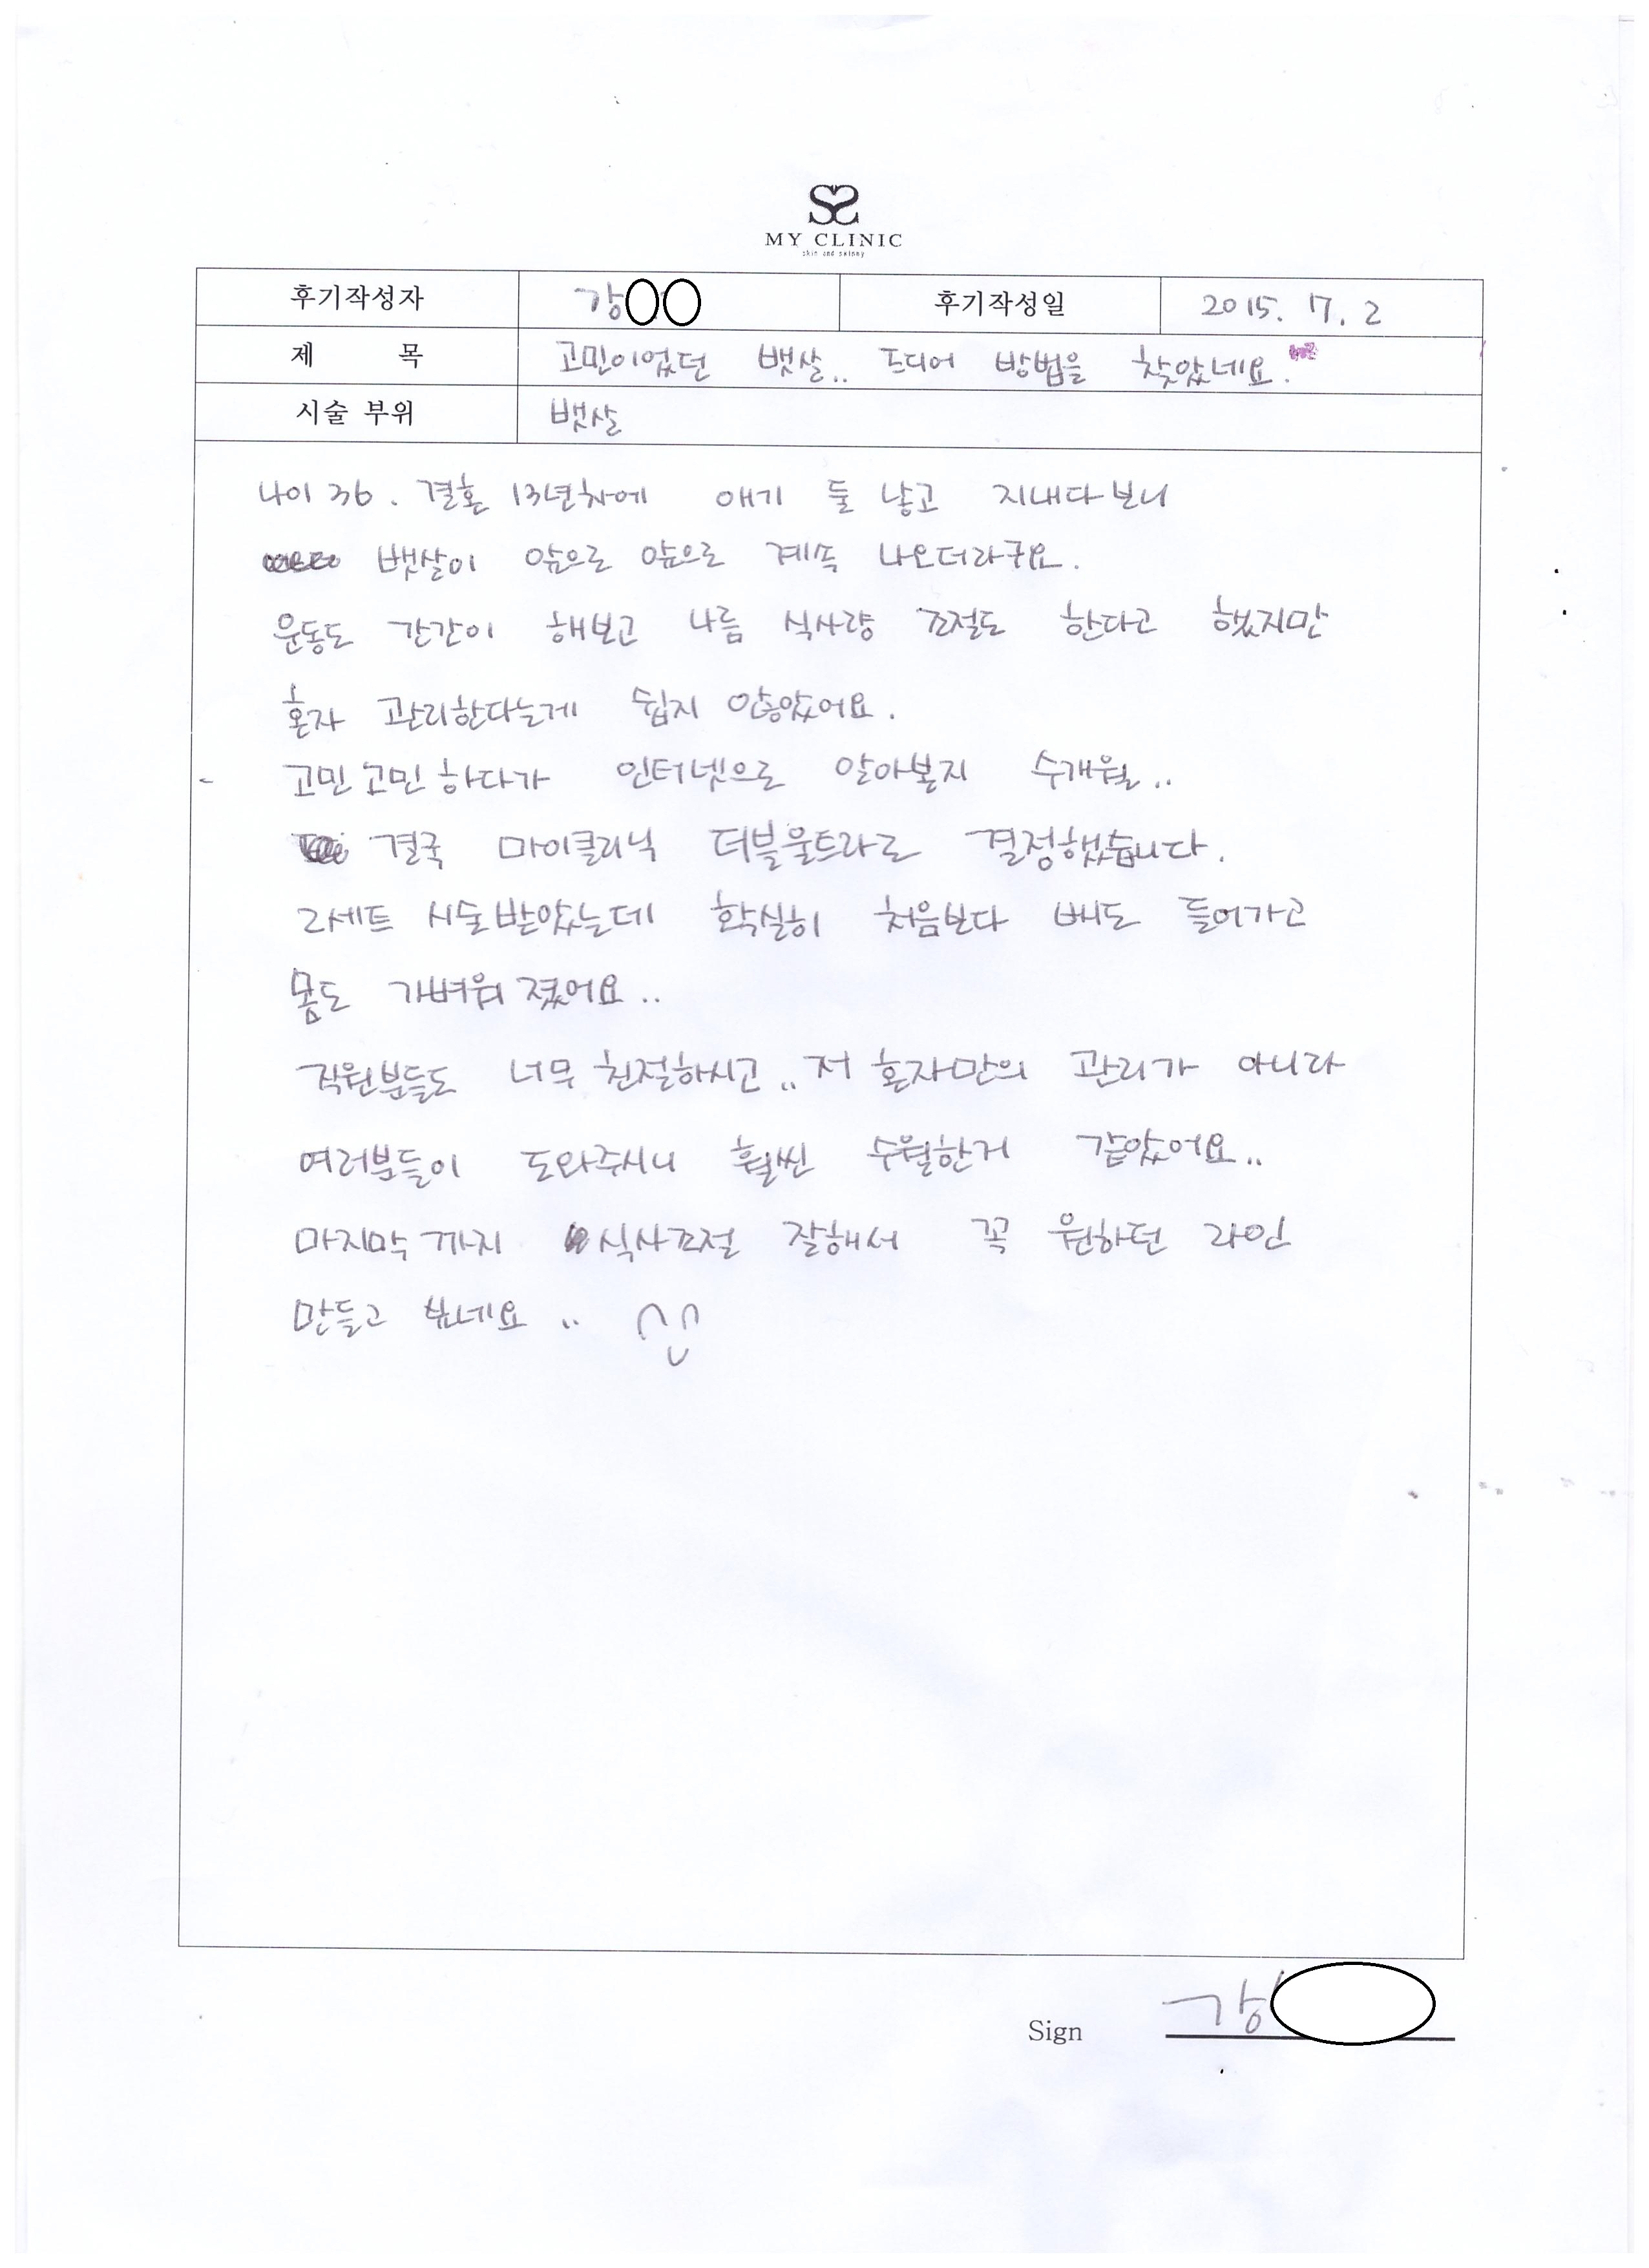 MY CLINIC
skin and skinny
후기작성자 강 후기작성일 2015. 7. 2
제 목 고민이었던 뱃살.. 드디어 방법을 찾았네요.
시술 부위 뱃살
나이 36. 결혼 13년차에 애기 둘 낳고 지내다보니
뱃살이 앞으로 앞으로 계속 나오더라구요.
운동도 간간이 해보고 나름 식사량 조절도 한다고 했지만
혼자 관리한다는게 쉽지 않았어요.
고민고민하다가 인터넷으로 알아본지 수개월..
결국 마이클리닉 더블울트라로 결정했습니다.
2세트 시술받았는데 확실히 처음보다 배도 들어가고
몸도 가벼워졌어요..
직원분들도 너무 친절하시고.. 저 혼자만의 관리가 아니라
여러분들이 도와주시니 훨씬 수월한거 같았어요..
마지막까지 식사조절 잘해서 꼭 원하던 라인
만들고 싶네요..
Sign 강